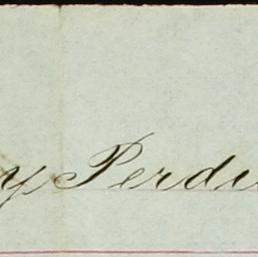 y Perdu